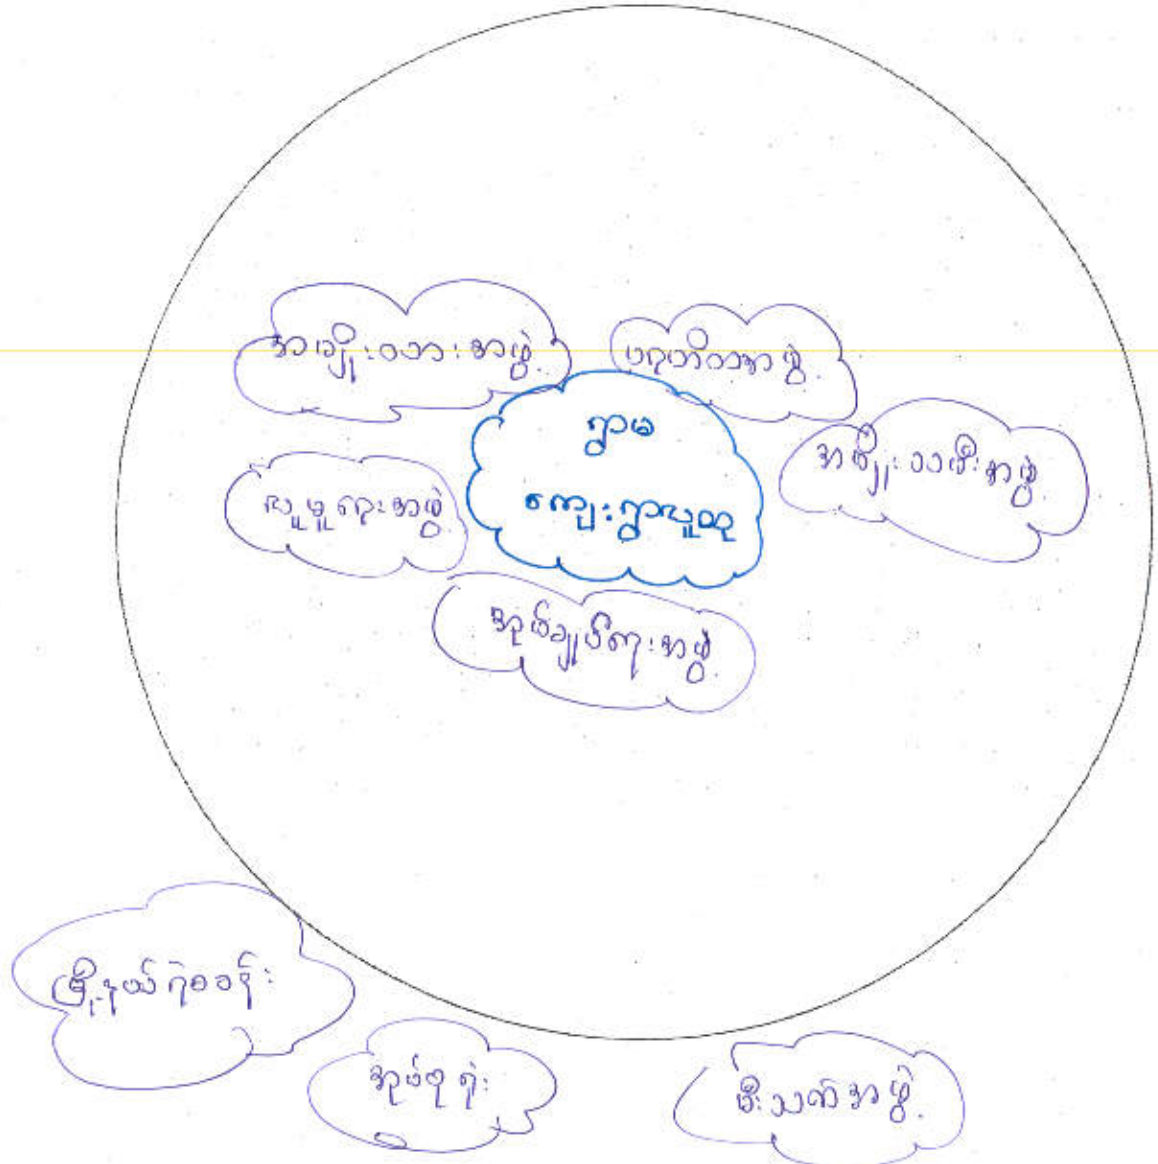 အမျိုးသားအဖွဲ့
ပရဟိတအဖွဲ့
ရွာမ
ကျေးရွာလူထု
အမျိုးသမီးအဖွဲ့
လူမှုရေးအဖွဲ့
အုပ်ချုပ်ရေးအဖွဲ့
မြို့နယ်ရဲစခန်း
အုပ်စုရုံး
မီးသတ်အဖွဲ့